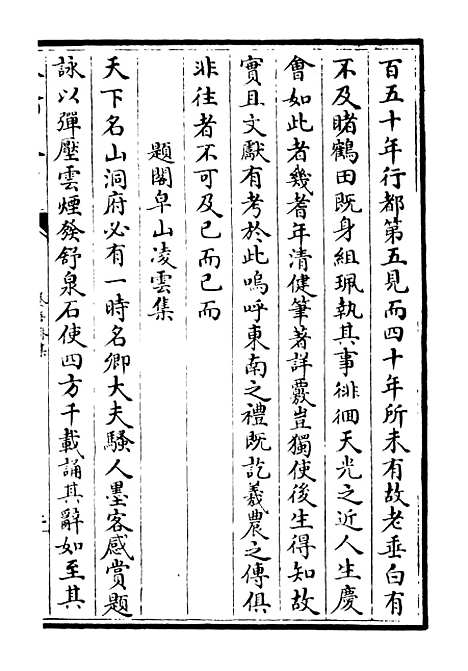 百五十年行都第五見而四十年所未有故老垂白有
不及睹鶴田既身組珮執其事徘徊天光之近人生慶
會如此者幾耆年清健筆著詳覈豈獨使後生得知故
實且文獻有考於此嗚呼東南之禮既訖羲農之傳俱
非往者不可及已而已而
題閣皁山凌雲集
天下名山洞府必有一時名卿大夫騷人墨客感賞題
詠以彈壓雲煙發舒泉石使四方千載誦其辭如至其